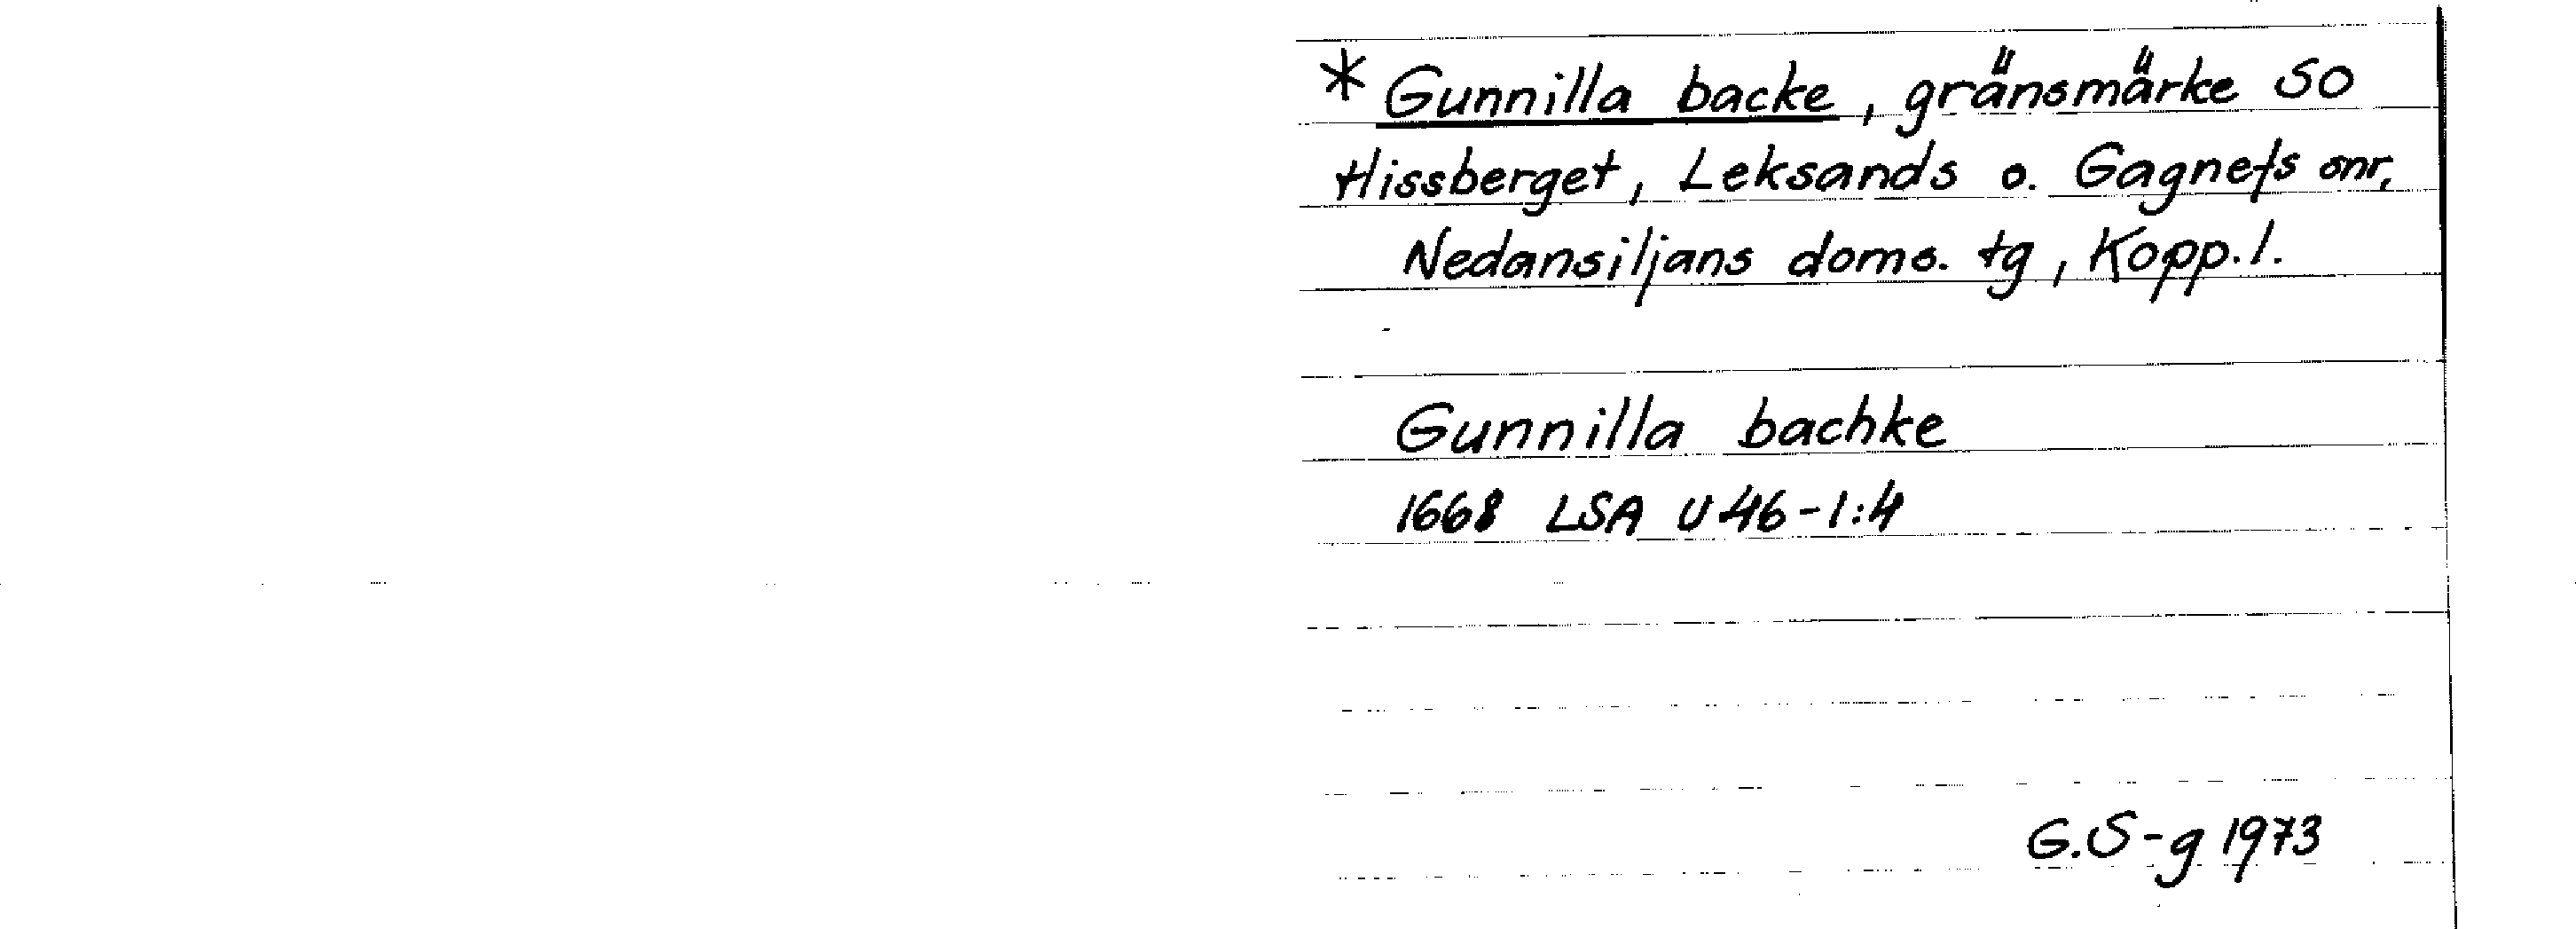 * Gunnilla backe, gränsmärke SO
Hissberget, Leksands o. Gagnefs snr,
Nedansiljans doms. tg, Kopp. l.
Gunnilla bachke
1668 LSA U 46-1:4
G.S-g 1973